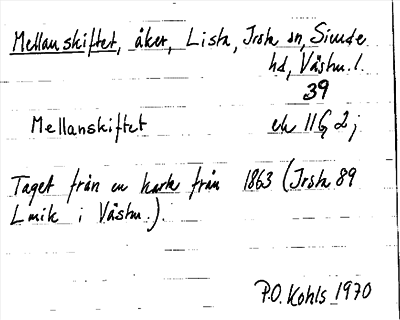 Mellanskiftet, åker, Lista, Irsta sn, Siende
hd, Västm. l.
39
Mellanskiftet ek 11G 2j
Taget från en karta från 1863 (Irsta 89
Lmik i Västm.).
P.O. Kohls 1970